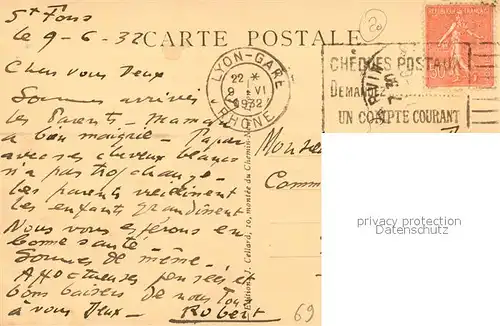 St Fons
le 9-6-32
CARTE POSTALE
Chers vous Deux
Sommes arrivés
les Parents - Maman
a bien maigrie - Papa
avec ses cheveux blancs
n'a pas trop changé -
Les parents vieillissent
les enfants grandissent
Nous vous espérons en
bonne santé -
Sommes de même -
Affectueuses pensées et
bons baisers de nous Tous
à vous Deux -
Robert
20
LYON-GARE
22 *
9 VI
1932
RHONE
CHÈQUES POSTAUX
DEMANDEZ
UN COMPTE COURANT
REPUBLIQUE FRANÇAISE
50
Editions J. Cellard, 10, montée du Chemin-Neuf
Comm
69
privacy protection
Datenschutz